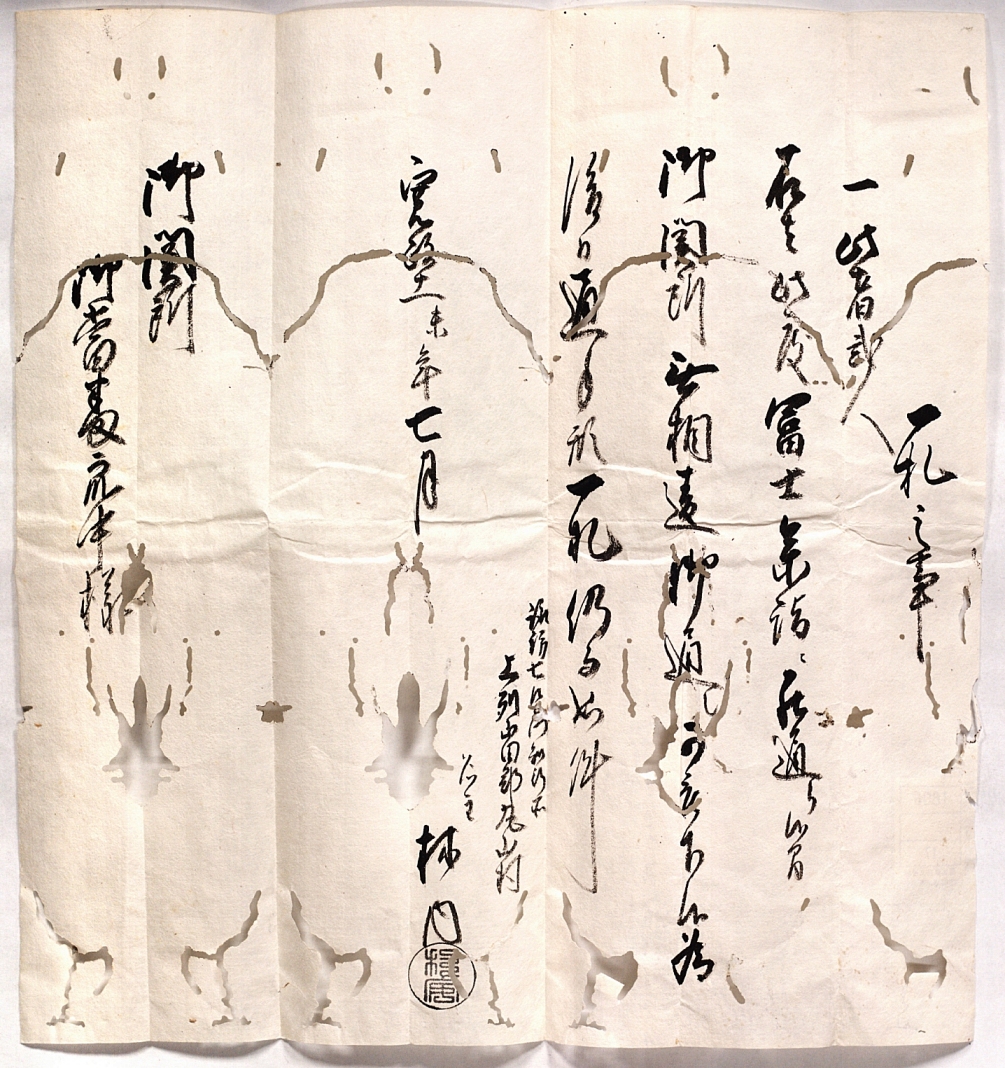 一札之事
一此者弐人
右者此度富士参詣ニ罷通り候間
御関所無相違御通し可被下候為
後日通手形一札仍而如件
諏訪七左衛門知行所
上州山田郡丸山村
名主
寛政十一未年七月
林内
御関所
御当番衆中様